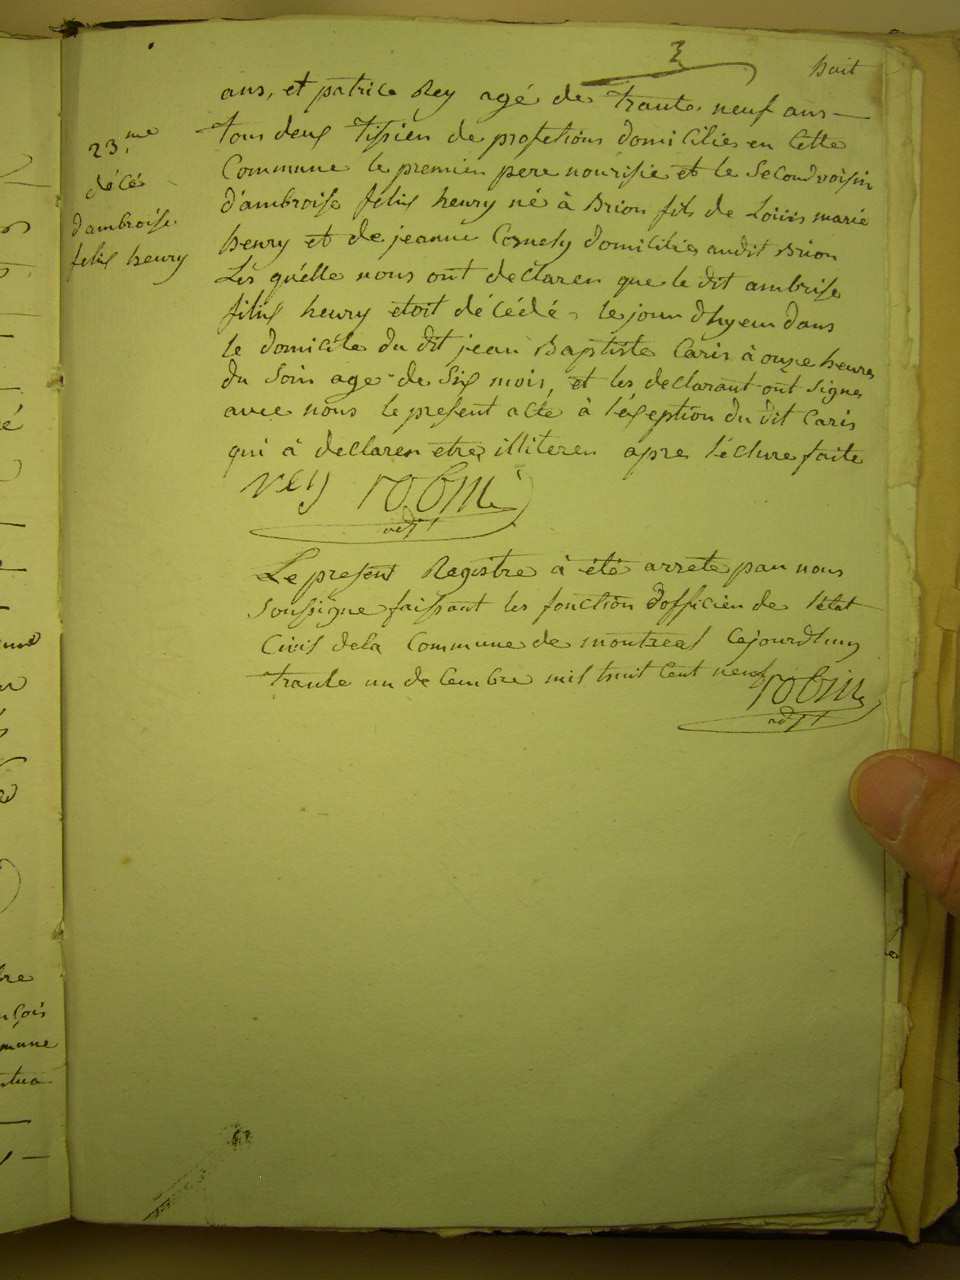 huit
ans, et patrice Rey agé de trante neuf ans
tous deux tissien de profetions domiciliés en cette
Commune le premier pere nourisie et le Second voisin
d'ambroise félix henry né à Brion fils de Loüis marié
henry et de jeanne Cornely domiciliés audit Brion
Les quélle nous ont declaren que le dit ambrise
félix henry etoit décédé le jour dhyeur dans
le domicile du dit jean Baptiste Caris à onze heures
du Soir age de Six mois, et les declarant ont Signes
avec nous le present acte à l'éxeption du dit Caris
qui à declaren etre illiteren apre l'éclure faite
Rey robin
adjt
23.me
décé
d'ambroise
felix henry
Le present Registre à été arrete par nous
Soussigne faissant les fonction d'officier de l'état
Civil de la Commune de montreal Cejourdhuy
trante un decembre mil huit Cent neuf
robin
adjt
bre
nçois
mune